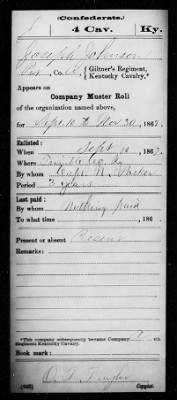 (Confederate.)
J 4 Cav. Ky.
Joseph Johnson
Pvt, Co. Giltner's Regiment, Kentucky Cavalry.*
Appears on
Company Muster Roll
of the organization named above,
for Sept. 10 to Nov. 30, 1862.
Enlisted:
When Sept 10, 1862.
Where Trimble Co. Ky.
By whom Capt. W. Parker
Period 3 years
Last paid:
By whom Nothing paid
To what time , 186 .
Present or absent Present
Remarks:
*This company subsequently became Company th
Regiment Kentucky Cavalry.
Book mark:
(642)
Copyist.